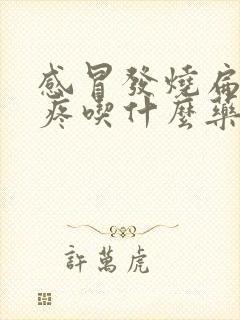 感冒發燒扁
疼喫什麼藥
許萬虎